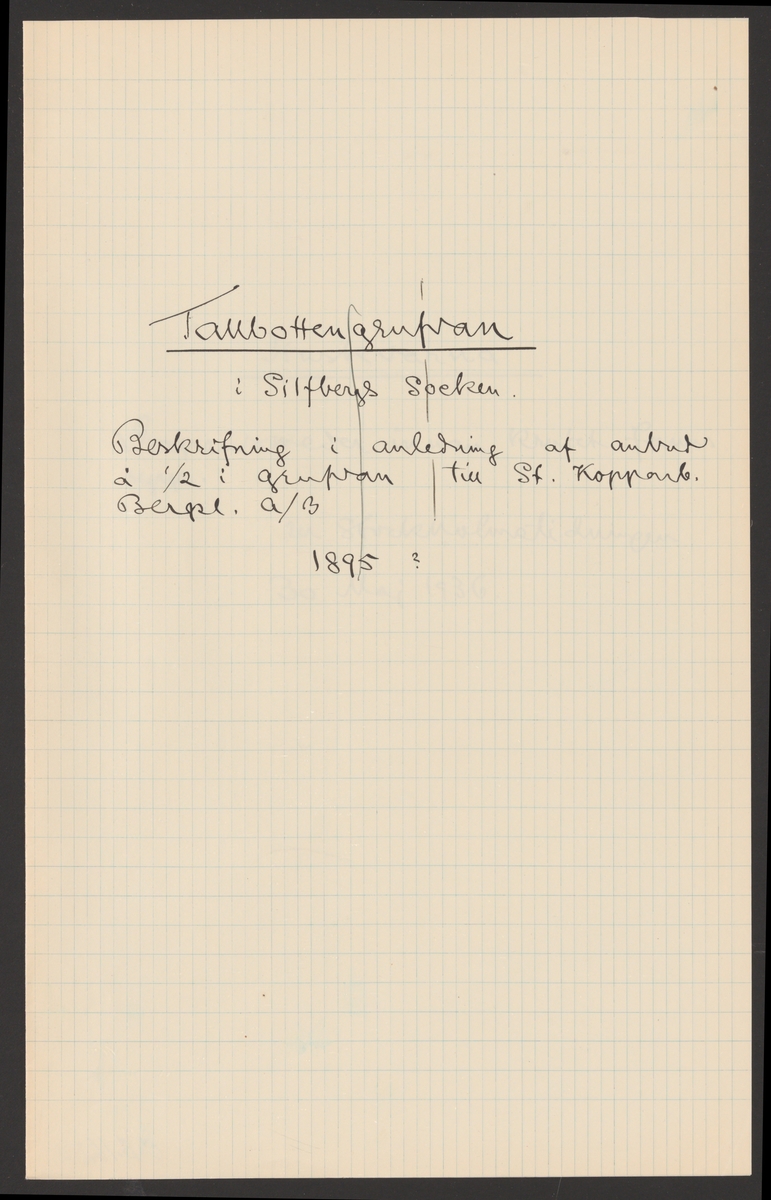 Tallbottengrufvan
i Silfbergs Socken.
Beskrifning i anledning af anbud
å 1/2 i grufvan till St. Kopparb.
Bergsl. A/B
1895 ?